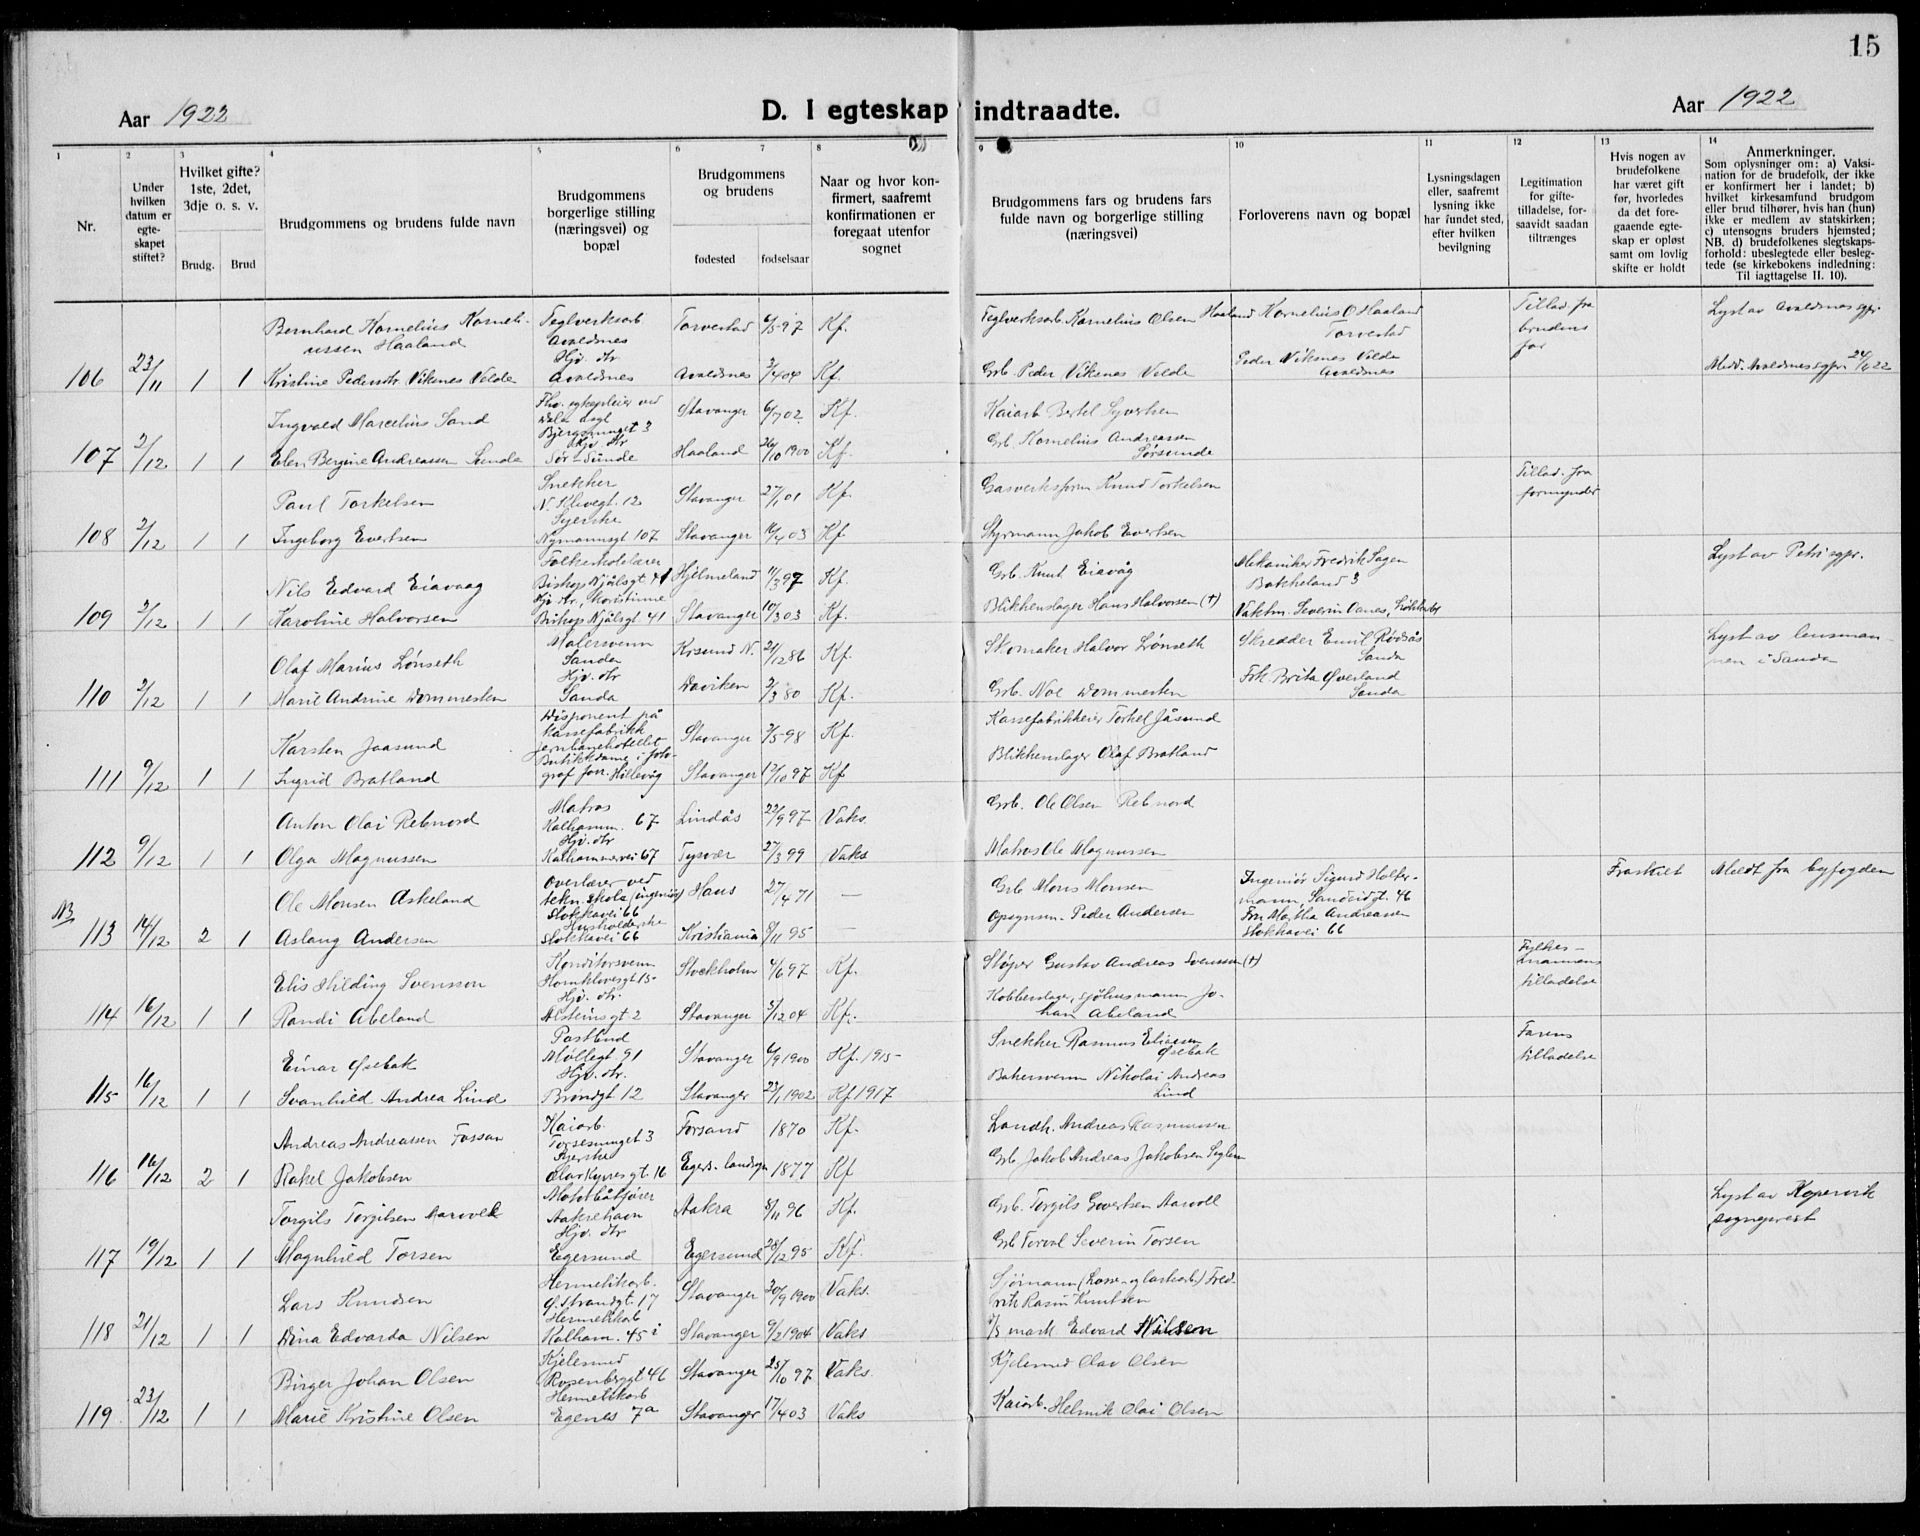 15
Aar 1922
D. I egteskap indtraadte.
Aar 1922
1
2
3
4
5
6
7
8
9
10
11
12
13
14
Nr.
Under
hvilken
datum er
egte-
skapet
stiftet?
Hvilket gifte?
1ste, 2det,
3dje o. s. v.
Brudg.
Brud
Brudgommens og brudens fulde navn
Brudgommens
borgerlige stilling
(næringsvei) og
bopæl
Brudgommens
og brudens
fødested
fødselsaar
Naar og hvor kon-
firmert, saafremt
konfirmationen er
foregaat utenfor
sognet
Brudgommens fars og brudens fars
fulde navn og borgerlige stilling
(næringsvei)
Forloverens navn og bopæl
Lysningsdagen
eller, saafremt
lysning ikke
har fundet sted,
efter hvilken
bevilgning
Legitimation
for gifte-
tilladelse, for-
saavidt saadan
tiltrænges
Hvis nogen av
brudefolkene
har været gift
før, hvorledes
da det fore-
gaaende egte-
skap er opløst
samt om lovlig
skifte er holdt
Anmerkninger.
Som oplysninger om: a) Vaksi-
nation for de brudefolk, der ikke
er konfirmert her i landet; b)
hvilket kirkesamfund brudgom
eller brud tilhører, hvis han (hun)
ikke er medlem av statskirken;
c) utensogns bruders hjemsted;
NB. d) brudefolkenes slegtskaps-
forhold: ubeslegtede eller besleg-
tede (se kirkebokens indledning:
Til iagttagelse II. 10).
Bernhard Kornelius Korneli-
ussen Haaland
Teglverksarb
Avaldnes
Torvestad 6/5-97 Kf.
Teglverksarb. Kornelius Olsen Haaland
Kornelius O Haaland
Torvestad
Tillad. fra
brudens
far
Lyst av Avaldnes sgpr.
106 23/11 1 1 Kristine Pedersdtr. Viksnes Velde
Hjv. dtr.
Avaldnes
Avaldnes 3/4 04 Kf.
Grb. Peder Viksnes Velde
Peder Viksnes Velde
Avaldnes
Medd. Avaldnes sgpr.
Ingvald Marcelius Sand
Bjergsmuget 3
Stavanger 6/7 02 Kf.
Kaiarb Bertel Syvertsen
107 2/12 1 1 Elen Bergine Andreassen Sunde
Hjv. dtr
Sør-Sunde
Haaland 26/10 1900 Kf.
Grb. Kornelius Andreassen
Sørsunde
Paul Torkelsen
Snekker
N. Klevegt. 12
Stavanger 27/1 01 Kf.
Gasverksform Knud Torkelsen
Tillad. fra
formynder
108 2/12 1 1 Ingeborg Evertsen
Syerske
Nymannsgt 107
Stavanger 16/4 03 Kf
Styrmann Jakob Evertsen
Nils Edvard Eiavaag
Folkeskolelærer
Biskop Njålsgt 41
Hjelmeland 11/3 97 Kf.
Grb. Knut Eiavåg
Mekaniker Fredrik Sagen
Bakkeland 3
Lyst av Petri sgpr.
109 2/12 1 1 Karoline Halvorsen
Hjv. dtr, kontordame
Biskop Njålsgt. 41
Stavanger 10/3 03 Kf.
Blikkenslager Hans Halvorsen (†)
Vaktm. Severin Oanes,
Olaf Marius Lønseth
Malersvenn
Sanda
Krsund N. 21/12 86 Kf.
Skomaker Halvor Lønseth
Skredder Emil Rødsås
Sanda
Lyst av lensman-
nen i Sanda
110 2/12 1 1 Marie Andrine Dommesten
Hjv. dtr
Sanda
Daviken 2/3 80 Kf.
Grb. Noe Dommesten
Frk Brita Øverland
Sanda
Karsten Jaasund
Disponent på
kassefabrikk
Jernbanehotellet
Stavanger 3/5-98 Kf.
Kassefabrikkeier Torkel Jåsund
111 9/12 1 1 Ingrid Bratland
Butikkdame i foto-
graf forr. Hillevåg
Stavanger 12/10 97 Kf
Blikkenslager Olaf Bratland
Anton Olai Rebnord
Matros
Kalhamm. 67
Lindås 22/9 97 Vaks.
Grb. Ole Olsen Rebnord
112 9/12 1 1 Olga Magnussen
Hjv. dtr
Kalhammervei 67
Tysvær 27/3 99 Vaks
Matros Ole Magnussen
Ole Monsen Askeland
Overlærer ved
tekn. skole (ingeniør)
Stokkavei 66
Haus 27/4 71 —
Grb Mons Monsen
Ingeniør Sigurd Holfer-
mann, Sandeidgt. 46
Fraskilt
Meldt fra byfogden
NB
113 14/12 2 1 Aslaug Andersen
Husholderske
Stokkavei 66
Kristiania 8/11 95 —
Opsynsm. Peder Andersen
Fru Martha Andreassen
Stokkavei 66
Elis Hilding Svensson
Konditorsvenn
Hornklovesgt 15
Stockholm 4/6 97 Kf.
Støper Gustav Andreas Svensson (†)
Fylkes-
mannens
tilladelse
114 16/12 1 1 Randi Abeland
Hjv. dtr.
Alsteinsgt 2
Stavanger 5/12 04 Kf.
Kobberslager, sjøhusmann Jo-
han Abeland
Einar Øsebak
Postbud
Møllegt 91
Stavanger 6/9 1900 Kf. 1915
Snekker Rasmus Eliassen
Øsebak
Farens
tilladelse
115 16/12 1 1 Svanhild Andrea Lind
Hjv. dtr.
Brøndgt 12
Stavanger 23/1 1902 Kf 1917
Bakersvenn Nikolai Andreas
Lind
Andreas Andreassen Fossan
Kaiarb.
Torsesmuget 3
Forsand 1870 Kf.
Landh. Andreas Rasmussen
116 16/12 2 1 Rakel Jakobsen
Syerske
Olavkyrresgt. 16
Egers. landsogn 1877 Kf
Grb Jakob Andreas Jakobsen Seglem
Torgils Torgilsen Aarvoll
Motorbåtfører
Aakrehavn
Aakra 8/11 96 Kf.
Grb. Torgils Govertsen Aarvoll
Lyst av Kopervik
sogneprest
117 19/12 1 1 Magnhild Torsen
Hjv. dtr
Egersund
Egersund 28/12 95 Kf.
Grb Torval Severin Torsen
Lars Knudsen
Hermetikarb.
Ø. Strandgt. 17
Stavanger 30/9 1900 Vaks.
Sjømann (Losse- og lastearb) Fred-
rik Rasm Knutsen
118 21/12 1 1 Dina Edvarda Nilsen
Hermetikkarb
Kalham. 45 i
Stavanger 9/2 1904 Vaks
Edvard Nilsen
Birger Johan Olsen
Kjelesmed
Rosenberggt 46
Stavanger 25/10 97 Vaks.
Kjelesmed Olav Olsen
119 23/12 1 1 Marie Kristine Olsen
Hermetikkarb
Egenes 7a
Stavanger 17/4 03 Vaks
Kaiarb. Helmik Olai Olsen